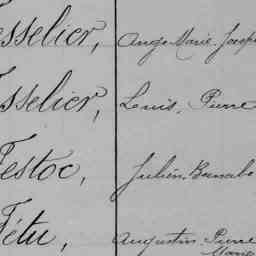 esselier, Ange Marie Joseph
esselier, Louis, Pierre
Festoc, Julien Barnabé
Fétu, Augustin Pierre
Marie